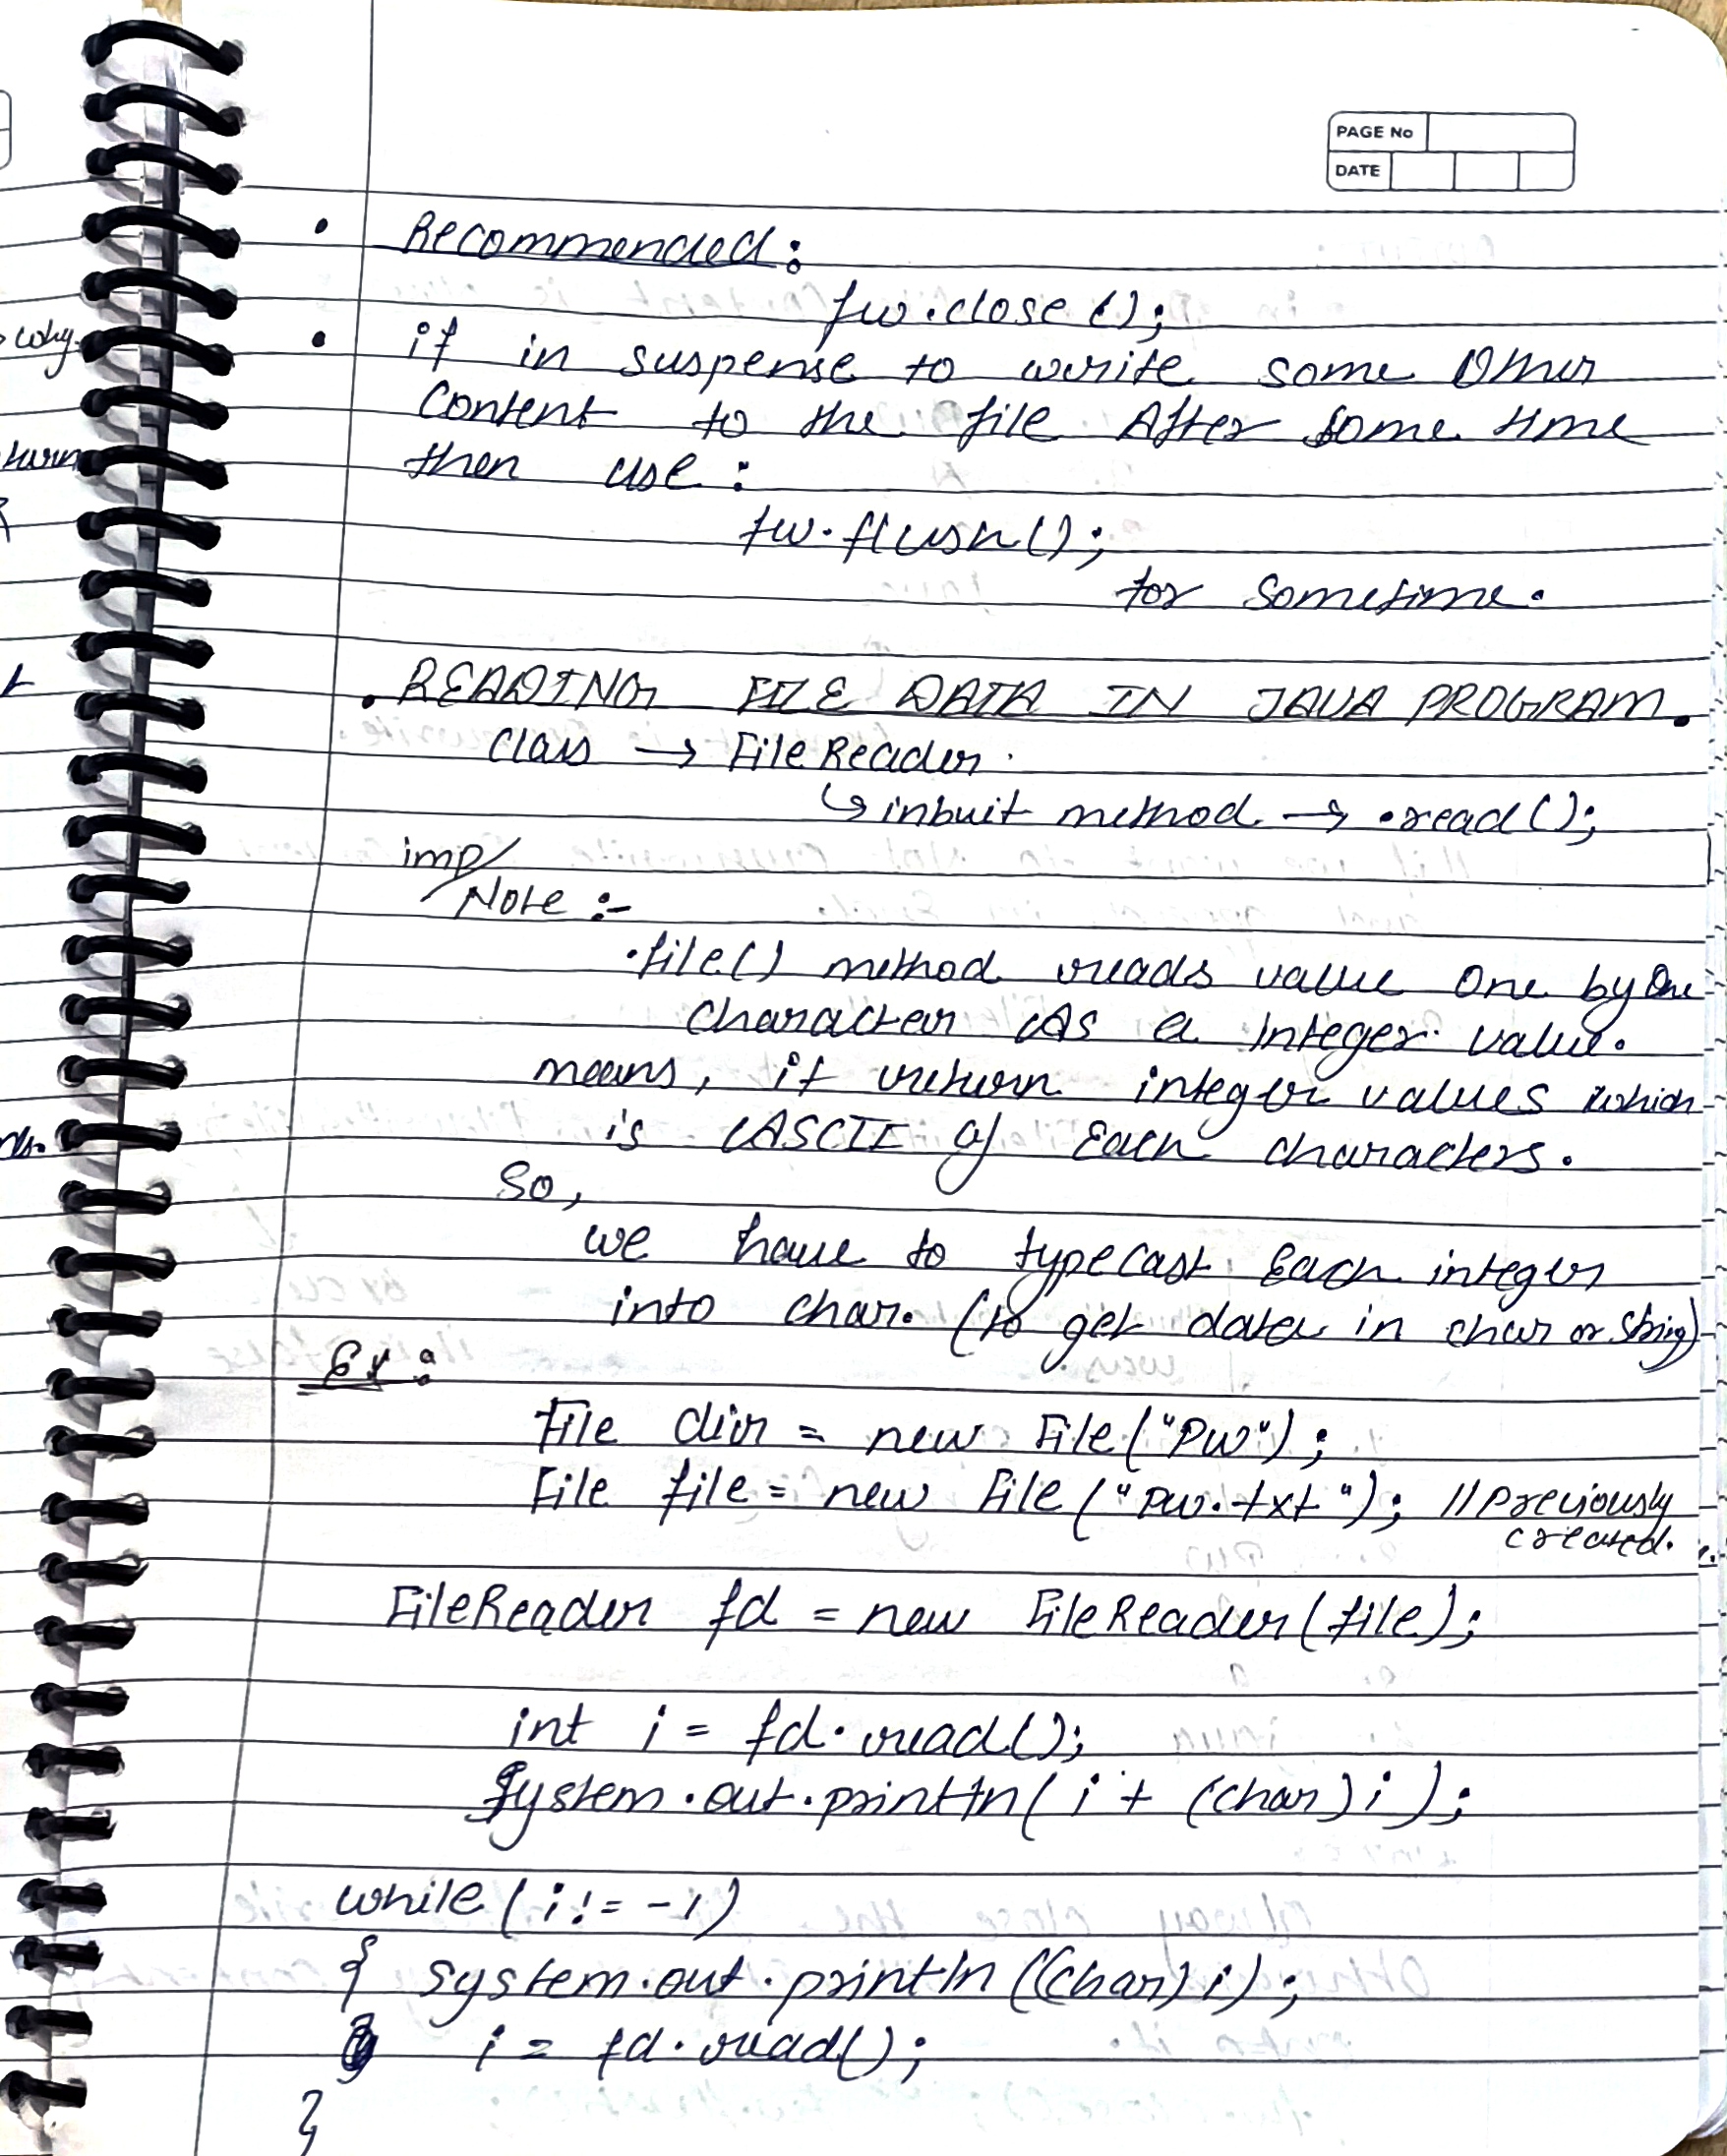 PAGE No
DATE
• Recommended:
fw.close();
• if in suspense to write some Other
Content to the file After some time
then use:
fw.flush();
for sometime.
. READING FILE DATA IN JAVA PROGRAM.
class → FileReader.
↳ inbuit method → .read();
imp/
Note :-
.file() method reads value one by One
character As a Integer value.
means, it return integer values which
is ASCII of Each characters.
So,
we have to typecast Each integer
into char. (to get data in char or String)
Ex:
File dir = new File("PW");
File file = new File("pw.txt"); //Previously
created.
FileReader fd = new FileReader(file);
int i = fd.read();
System.out.println(i + (char)i);
while(i != -1)
{ system.out.println((char)i);
i = fd.read();
}
why
turn